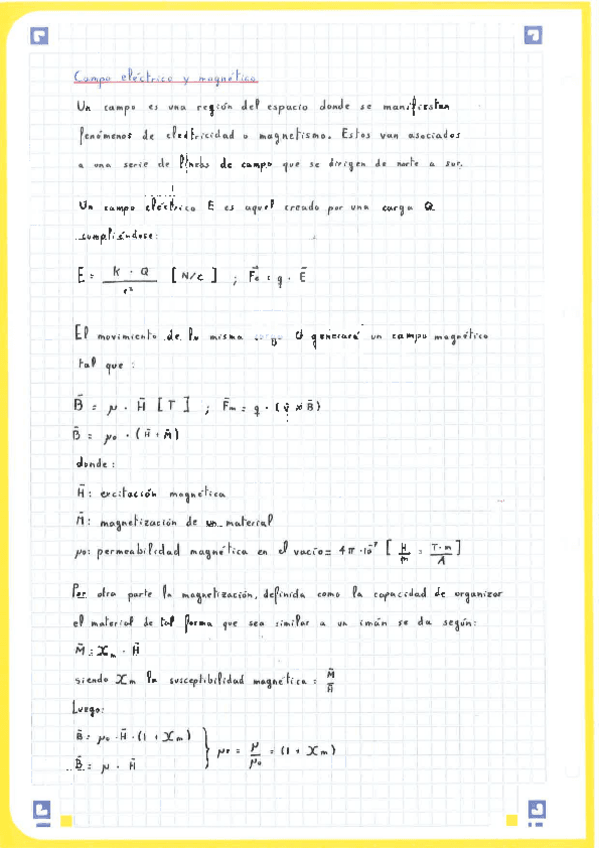 Campo eléctrico y magnético
Un campo es una región del espacio donde se manifiestan
fenómenos de electricidad o magnetismo. Estos van asociados
a una serie de líneas de campo que se dirigen de norte a sur.
Un campo eléctrico E es aquel creado por una carga Q
cumpliéndose:
E = K · Q / r² [N/c] ; F⃗e = q · E⃗
El movimiento de la misma carga Q generará un campo magnético
tal que :
B⃗ = μ · H⃗ [T] ; F⃗m = q · (v⃗ × B⃗)
B⃗ = μ₀ · (H⃗ + M⃗)
donde:
H⃗: excitación magnética
M⃗: magnetización de un material
μ₀: permeabilidad magnética en el vacío = 4π·10⁻⁷ [H/m = T·m/A]
Por otra parte la magnetización, definida como la capacidad de organizar
el material de tal forma que sea similar a un imán se da según:
M⃗ = Xm · H⃗
siendo Xm la susceptibilidad magnética = M⃗/H⃗
Luego:
B⃗ = μ₀ · H⃗ · (1 + Xm)
B⃗ = μ · H⃗ } μr = μ/μ₀ = (1 + Xm)